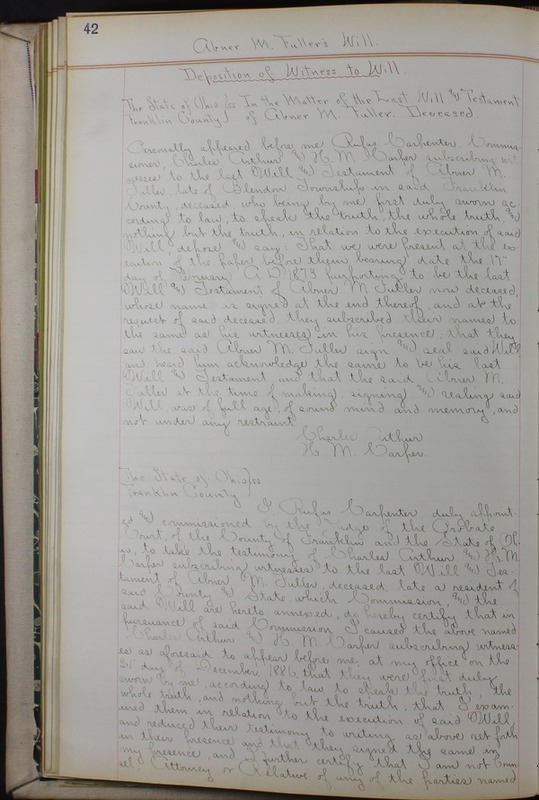 42
Abner M. Fuller's Will.
Deposition of Witness to Will.
The State of Ohio }ss In the Matter of the Last Will & Testament
Franklin County } of Abner M. Fuller. Deceased.
Personally appeared before me Rufus Carpenter Commis-
sioner, Charles Arthur & H. M. Carper subscribing wit
nesses to the last Will & Testament of Abner M.
Fuller, late of Blendon Township in said Franklin
County, deceased who being by me first duly sworn ac
cording to law, to speak the truth, the whole truth, &
nothing but the truth, in relation to the execution of said
Will, depose & say: That we were present at the ex
ecution of the paper before them bearing date the 17"
day of A.D. 1873 purporting to be the last
Will & Testament of Abner M. Fuller now deceased,
whose name is signed at the end thereof, and at the
request of said deceased, they subscribed their names to
the same as his witnesses in his presence; that they
saw the said Abner M. Fuller sign & seal said Will
and heard him acknowledge the same to be his last
Will & Testament and that the said Abner M.
Fuller at the time of making, signing & sealing said
Will, was of full age, of sound mind and memory, and
not under any restraint.
Charles Arthur
H. M. Carper.
The State of Ohio }ss
Franklin County
I Rufus Carpenter duly appoint-
ed & commissioned by the Judge of the Probate
Court of the County of Franklin and the State of Oh
io, to take the testimony of Charles Arthur & H. M.
Carper subscribing witnesses to the last Will & Tes-
tament of Abner M. Fuller, deceased, late a resident of
said County & State which Commission, & the
said Will are hereto annexed, do hereby certify that in
pursuance of said Commission I caused the above named
Charles Arthur & H M. Carper subscribing witness-
es as aforesaid to appear before me, at my office on the
day of December 1886, that they were first duly
sworn by me, according to law to speak the truth, the
whole truth, and nothing but the truth; that I exam-
ined them in relation to the execution of said Will,
and reduced their testimony to writing as above set forth
in their presence and that they signed the same in
my presence, and I further certify that I am not Coun
sel, Attorney or Relative of any of the parties named